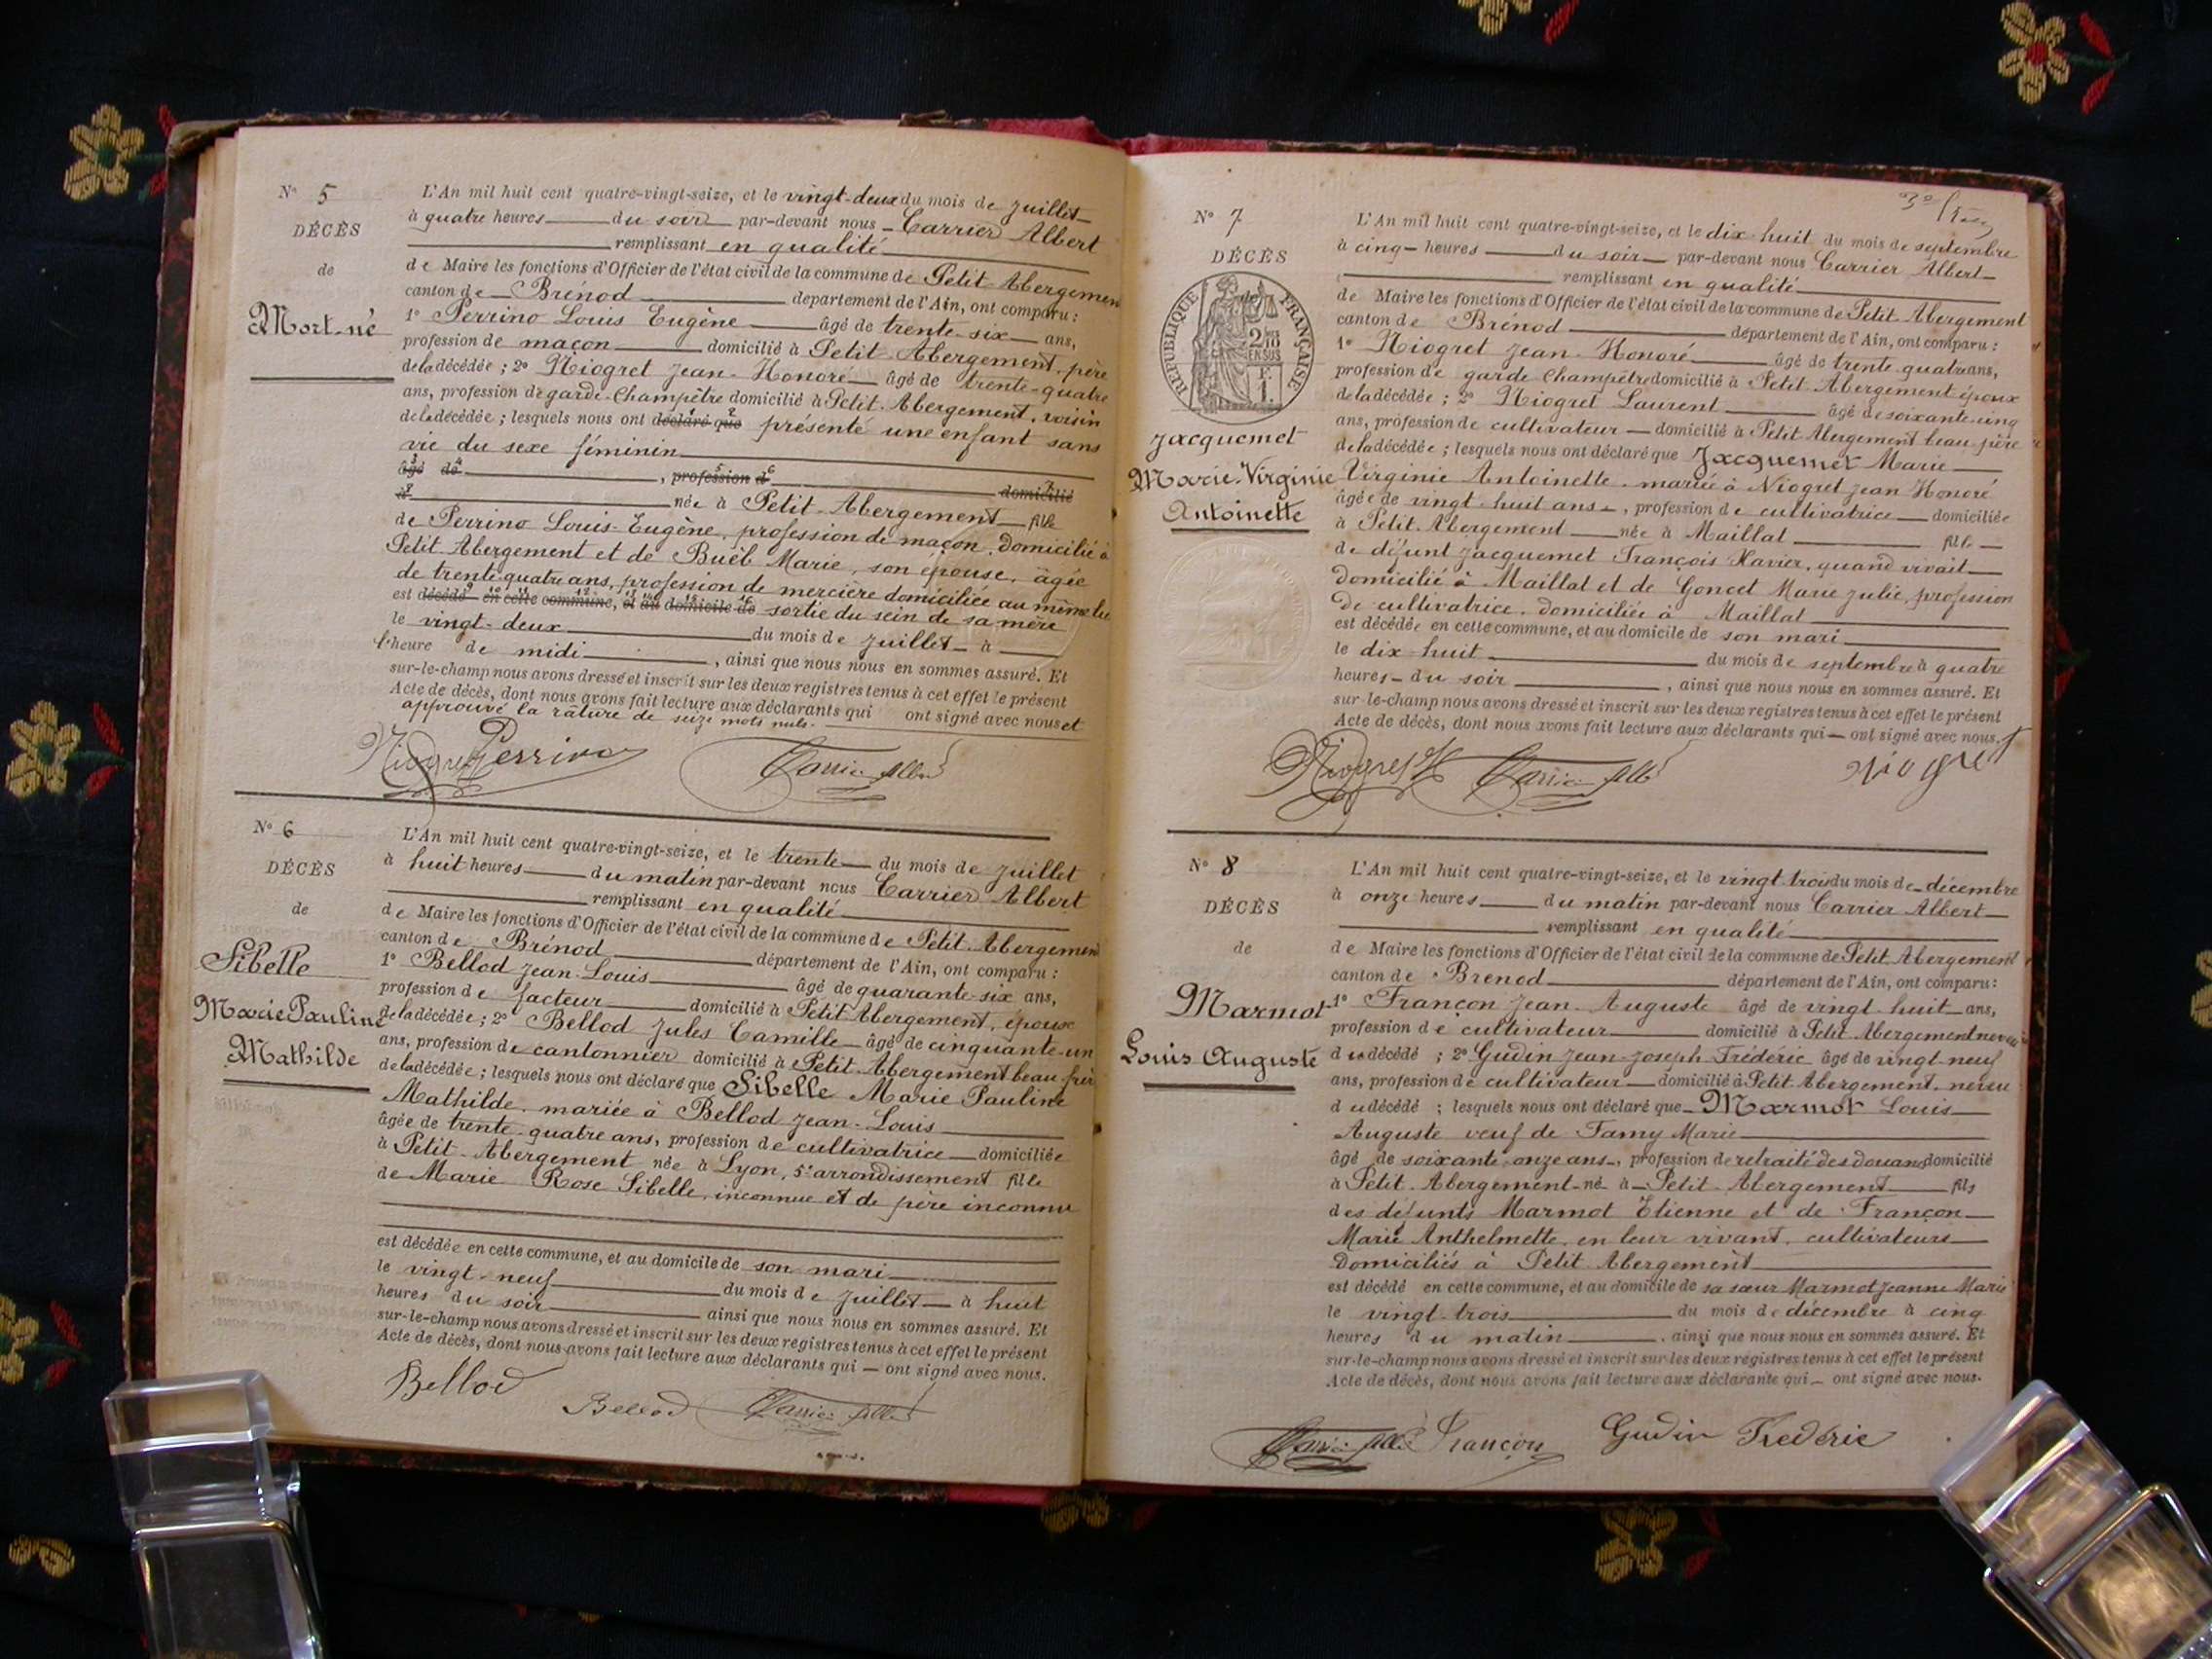 N° 5
DÉCÈS
de
Mort-né
L'An mil huit cent quatre-vingt-seize, et le vingt-deux du mois de juillet
à quatre heures du soir par-devant nous Carrier Albert
remplissant en qualité
de Maire les fonctions d'Officier de l'état civil de la commune de Petit-Abergemen
canton de Brénod département de l'Ain, ont comparu :
1° Perrino Louis Eugène âgé de trente-six ans,
profession de maçon domicilié à Petit-Abergement, père
de la décédée ; 2° Niogret Jean-Honoré âgé de trente-quatre
ans, profession de garde-Champêtre domicilié à Petit-Abergement, voisin
de la décédée ; lesquels nous ont déclaré que présenté une enfant sans
vie du sexe féminin
âgé de , profession d domicilié
à née à Petit-Abergement fille
de Perrino Louis-Eugène, profession de maçon, domicilié à
Petit-Abergement et de Buëb Marie, son épouse, âgée
de trente-quatre ans, profession de mercière domiciliée au même lieu
est décédé en cette commune, et au domicile de sortie du sein de sa mère
le vingt-deux du mois de juillet à
l'heure de midi , ainsi que nous nous en sommes assuré. Et
sur-le-champ nous avons dressé et inscrit sur les deux registres tenus à cet effet le présent
Acte de décès, dont nous avons fait lecture aux déclarants qui ont signé avec nous et
approuvé la rature de seize mots nuls.
Niogret Perrino Carrier Albert
N° 6
DÉCÈS
de
Sibelle
Marie Pauline
Mathilde
L'An mil huit cent quatre-vingt-seize, et le trente du mois de juillet
à huit heures du matin par-devant nous Carrier Albert
remplissant en qualité
de Maire les fonctions d'Officier de l'état civil de la commune de Petit-Abergemen
canton de Brénod département de l'Ain, ont comparu :
1° Bellod Jean-Louis âgé de quarante-six ans,
profession de facteur domicilié à Petit-Abergement, époux
de la décédée ; 2° Bellod Jules Camille âgé de cinquante-un
ans, profession de cantonnier domicilié à Petit-Abergement beau-frèr
de la décédée ; lesquels nous ont déclaré que Sibelle Marie Pauline
Mathilde, mariée à Bellod Jean-Louis
âgée de trente-quatre ans, profession de cultivatrice domiciliée
à Petit-Abergement née à Lyon, 5e arrondissement fille
de Marie Rose Sibelle, inconnue et de père inconnu
est décédée en cette commune, et au domicile de son mari
le vingt-neuf du mois de juillet à huit
heures du soir ainsi que nous nous en sommes assuré. Et
sur-le-champ nous avons dressé et inscrit sur les deux registres tenus à cet effet le présent
Acte de décès, dont nous avons fait lecture aux déclarants qui ont signé avec nous.
Bellod
Bellod Carrier Albert
N° 7
DÉCÈS
de
RÉPUBLIQUE FRANÇAISE
2/10
EN SUS
F.
1.
Jacquemet
Marie-Virginie
Antoinette
L'An mil huit cent quatre-vingt-seize, et le dix-huit du mois de septembre
à cinq heures du soir par-devant nous Carrier Albert
remplissant en qualité
de Maire les fonctions d'Officier de l'état civil de la commune de Petit-Abergement
canton de Brénod département de l'Ain, ont comparu :
1° Niogret Jean-Honoré âgé de trente-quatre ans,
profession de garde Champêtre domicilié à Petit-Abergement époux
de la décédée ; 2° Niogret Laurent âgé de soixante-cinq
ans, profession de cultivateur domicilié à Petit-Abergement beau-père
de la décédée ; lesquels nous ont déclaré que Jacquemet Marie
Virginie Antoinette, mariée à Niogret Jean Honoré
âgée de vingt-huit ans, profession de cultivatrice domiciliée
à Petit-Abergement née à Maillat fille
de défunt Jacquemet François Xavier, quand vivait
domicilié à Maillat et de Goncet Marie Julie, profession
de cultivatrice, domiciliée à Maillat
est décédée en cette commune, et au domicile de son mari
le dix-huit du mois de septembre à quatre
heures du soir , ainsi que nous nous en sommes assuré. Et
sur-le-champ nous avons dressé et inscrit sur les deux registres tenus à cet effet le présent
Acte de décès, dont nous avons fait lecture aux déclarants qui ont signé avec nous.
Niogret JH Carrier Albert Niogret
N° 8
DÉCÈS
de
Marmot
Louis Auguste
L'An mil huit cent quatre-vingt-seize, et le vingt trois du mois de décembre
à onze heures du matin par-devant nous Carrier Albert
remplissant en qualité
de Maire les fonctions d'Officier de l'état civil de la commune de Petit-Abergement
canton de Brenod département de l'Ain, ont comparu :
1° Françon Jean-Auguste âgé de vingt-huit ans,
profession de cultivateur domicilié à Petit-Abergement neveu
du décédé ; 2° Gudin Jean-Joseph-Frédéric âgé de vingt-neuf
ans, profession de cultivateur domicilié à Petit-Abergement, neveu
du décédé ; lesquels nous ont déclaré que Marmot Louis
Auguste veuf de Famy Marie
âgé de soixante-onze ans, profession de retraité des douanes domicilié
à Petit-Abergement né à Petit-Abergement fils
des défunts Marmot Etienne et de Françon
Marie Anthelmette, en leur vivant, cultivateurs
domiciliés à Petit-Abergement
est décédé en cette commune, et au domicile de sa sœur Marmot Jeanne Marie
le vingt-trois du mois de décembre à cinq
heures du matin , ainsi que nous nous en sommes assuré. Et
sur-le-champ nous avons dressé et inscrit sur les deux registres tenus à cet effet le présent
Acte de décès, dont nous avons fait lecture aux déclarants qui ont signé avec nous.
Carrier Albert Françon Gudin Frédéric